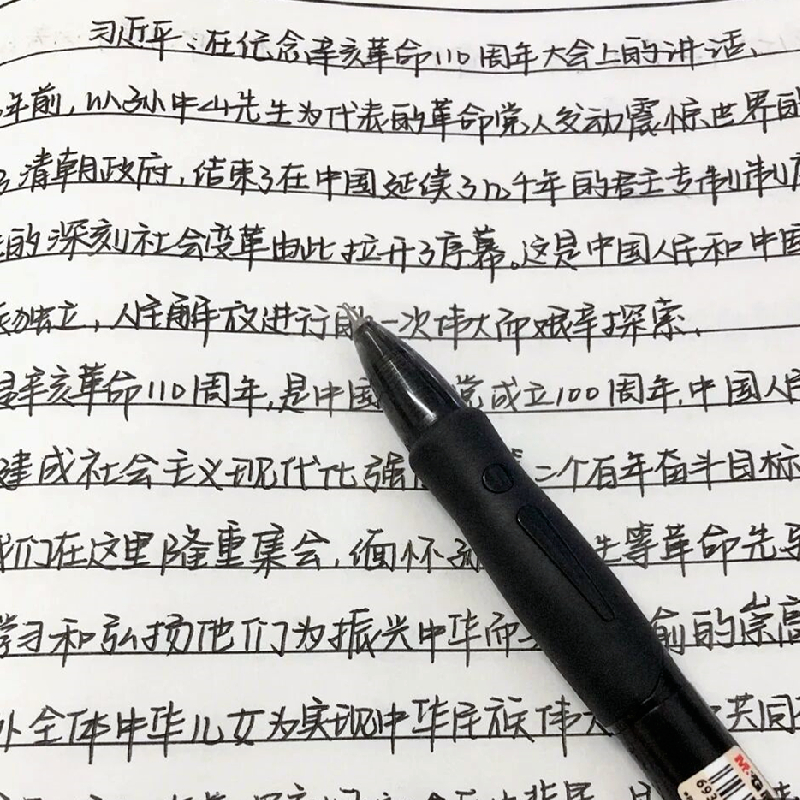 习近平:在纪念辛亥革命110周年大会上的讲话、
年前,以孙中山先生为代表的革命党人发动震惊世界的
清朝政府,结束了在中国延续了几千年的君主专制制度
的深刻社会变革由此拉开了序幕。这是中国人民和中国
独立,人民解放进行的一次伟大而艰辛探索.
是辛亥革命110周年,是中国 党成立100周年,中国人民
建成社会主义现代化强 二个百年奋斗目标
我们在这里隆重集会,缅怀孙 生等革命先
学习和弘扬他们为振兴中华而 前的崇高
外全体中华儿女为实现中华民族伟大 共同
M&G
69